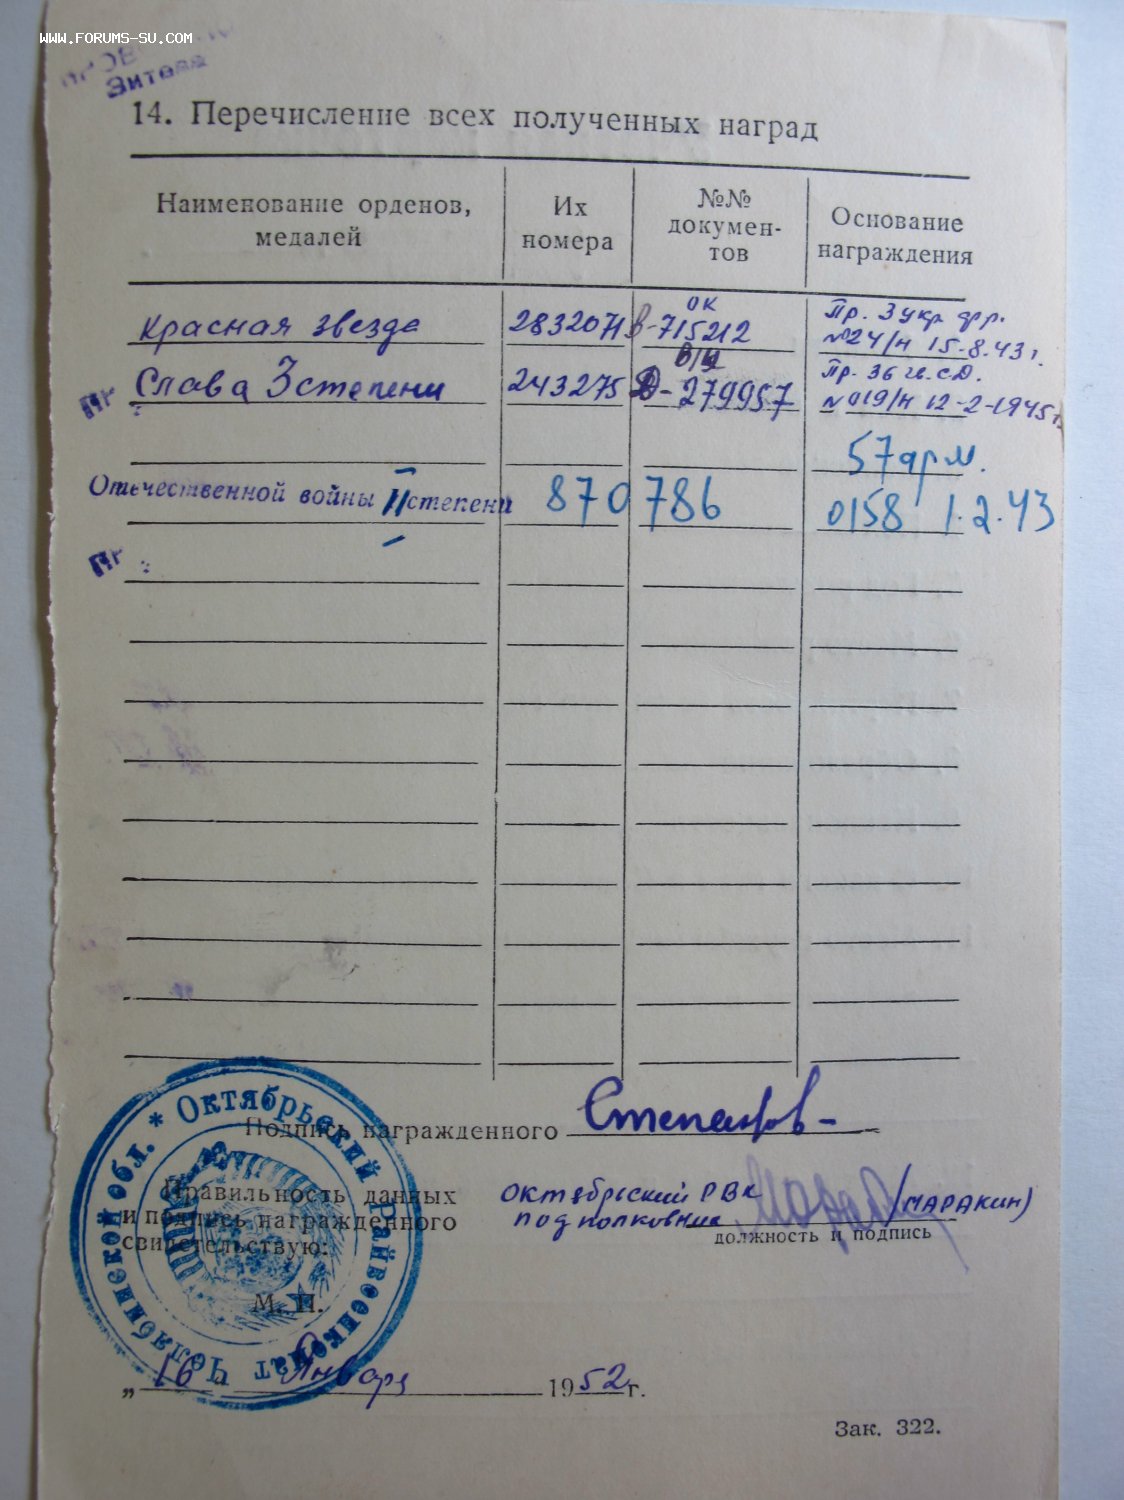 WWW.FORUMS-SU.COM
14. Перечисление всех полученных наград
Наименование орденов, медалей
Их номера
№№ докумен-
тов
Основание награждения
Красная звезда 2832071 В-715212 Пр. 3 укр фр.
ОК
№24/н 15-8.43 г.
Слава 3 степени 243275 Д-279957 Пр. 36 гв.с.д.
№019/н 12-2-1945 г.
57 арм.
Отечественной войны II степени 870786 0158 1.2.43
Пг
Октябрьский Райвоенкомат Челябинской обл. *
Подпись награжденного Степанов
Правильность данных
и подпись награжденного
свидетельствую:
Октябрьский РВК
подполковник (Маракин)
должность и подпись
М. П.
„16 Января 1952 г.
Зак. 322.